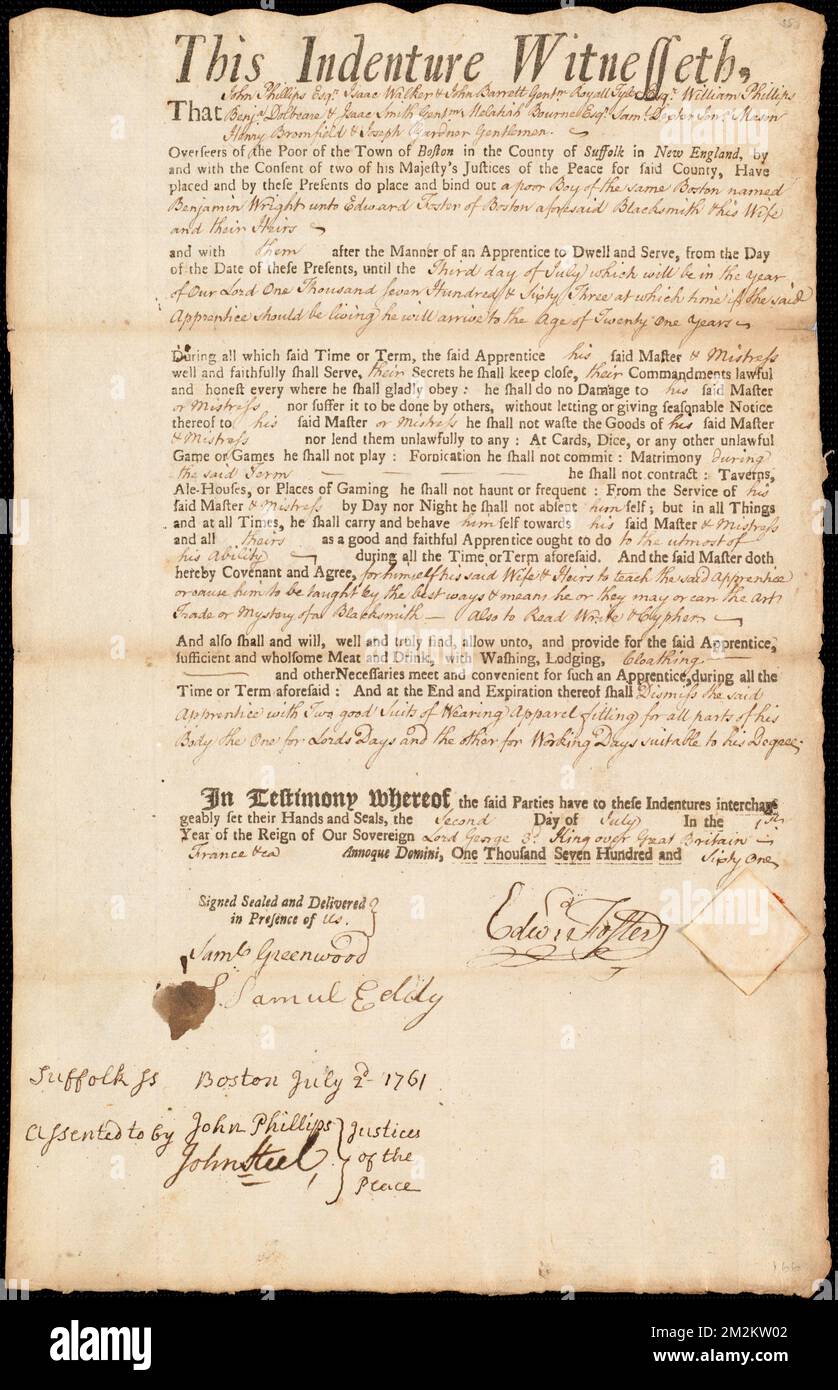 This Indenture Witnesseth,
John Phillips Esqr. Isaac Walker & John Barrett Gentm. Royall Tyler Esqr. William Phillips
That Benja. Dolbeare & Isaac Smith Gentmn. Melatiah Bourne Esqr. Saml. Dexter Jona. Mason
Henry Bromfield & Joseph Gardner Gentlemen.
Overseers of the Poor of the Town of Boston in the County of Suffolk in New England, by
and with the Consent of two of his Majesty's Justices of the Peace for said County, Have
placed and by these Presents do place and bind out a poor Boy of the same Boston named
Benjamin Wright unto Edward Foster of Boston aforesaid Blacksmith & his Wife
and their Heirs
and with them after the Manner of an Apprentice to Dwell and Serve, from the Day
of the Date of these Presents, until the Third day of July which will be in the Year
of Our Lord One Thousand Seven Hundred & Sixty Three at which time if the said
Apprentice should be living he will arrive to the Age of Twenty One Years
During all which said Time or Term, the said Apprentice his said Master & Mistress
well and faithfully shall Serve, their Secrets he shall keep close, their Commandments lawful
and honest every where he shall gladly obey : he shall do no Damage to his said Master
or Mistress nor suffer it to be done by others, without letting or giving seasonable Notice
thereof to his said Master or Mistress he shall not waste the Goods of his said Master
& Mistress nor lend them unlawfully to any : At Cards, Dice, or any other unlawful
Game or Games he shall not play : Fornication he shall not commit : Matrimony during
the said Term he shall not contract : Taverns,
Ale-Houses, or Places of Gaming he shall not haunt or frequent : From the Service of his
said Master & Mistress by Day nor Night he shall not absent him self ; but in all Things
and at all Times, he shall carry and behave him self towards his said Master & Mistress
and all theirs as a good and faithful Apprentice ought to do to the utmost of
his Ability during all the Time or Term aforesaid. And the said Master doth
hereby Covenant and Agree, for himself his said Wife & Heirs to teach the said Apprentice
or cause him to be taught by the best ways & means he or they may or can the Art
Trade or Mystery of a Blacksmith — Also to Read Write & Cypher
And also shall and will, well and truly find, allow unto, and provide for the said Apprentice,
sufficient and wholsome Meat and Drink, with Washing, Lodging, Cloathing
and other Necessaries meet and convenient for such an Apprentice, during all the
Time or Term aforesaid : And at the End and Expiration thereof shall Dismiss the said
Apprentice with Two good Suits of Wearing Apparel fitting for all parts of his
Body the One for Lords Days and the other for Working Days suitable to his Degree.
In Testimony whereof, the said Parties have to these Indentures interchan-
geably set their Hands and Seals, the Second Day of July In the 1st
Year of the Reign of Our Sovereign Lord George 3d. King over Great Britain
France &ca Annoque Domini, One Thousand Seven Hundred and Sixty One
Signed Sealed and Delivered
in Presence of Us.
Edwd Foster
Saml. Greenwood
Samul Eddy
Suffolk ss Boston July 2d 1761
Assented to by John Phillips Justices
John Steel of the
Peace
166
alamy
Image ID: 2M2KW02
www.alamy.com